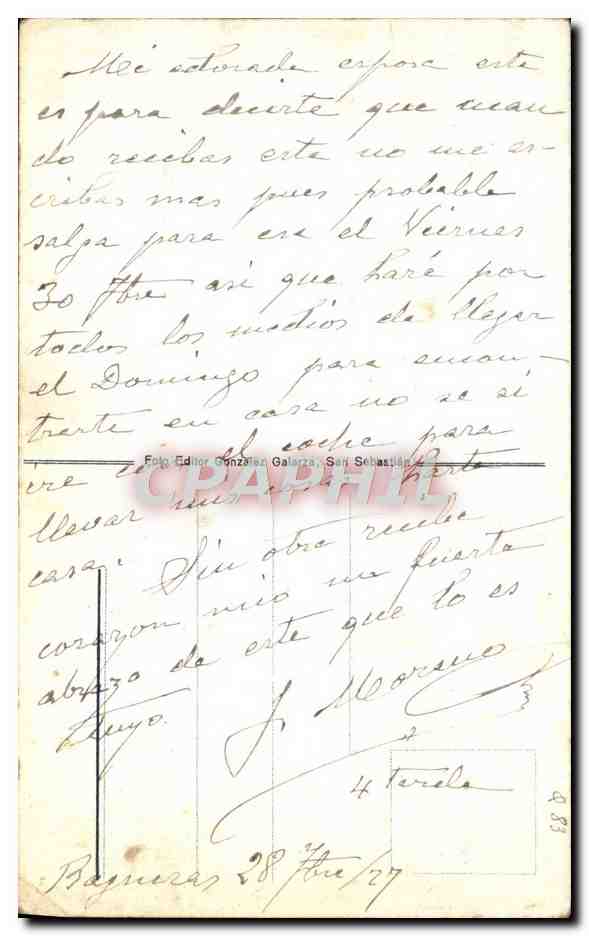 Mi adorada esposa esta
es para decirte que cuan
do recibas esta no me es-
cribas mas pues probable
salga para esa el Viernes
30 7bre asi que haré por
todos los medios de llegar
el Domingo para encon-
trarte en casa no se si
ire con el coche para
Foto Editor González Galarza, San Sebastián
CPAPHIL
llevar mis cosas hasta
casa. Sin otra recibe
corazon mio un fuerte
abrazo de este que lo es
tuyo.
J. Moreno
4 tarde
Q 83
Bagneras 28 7bre/27